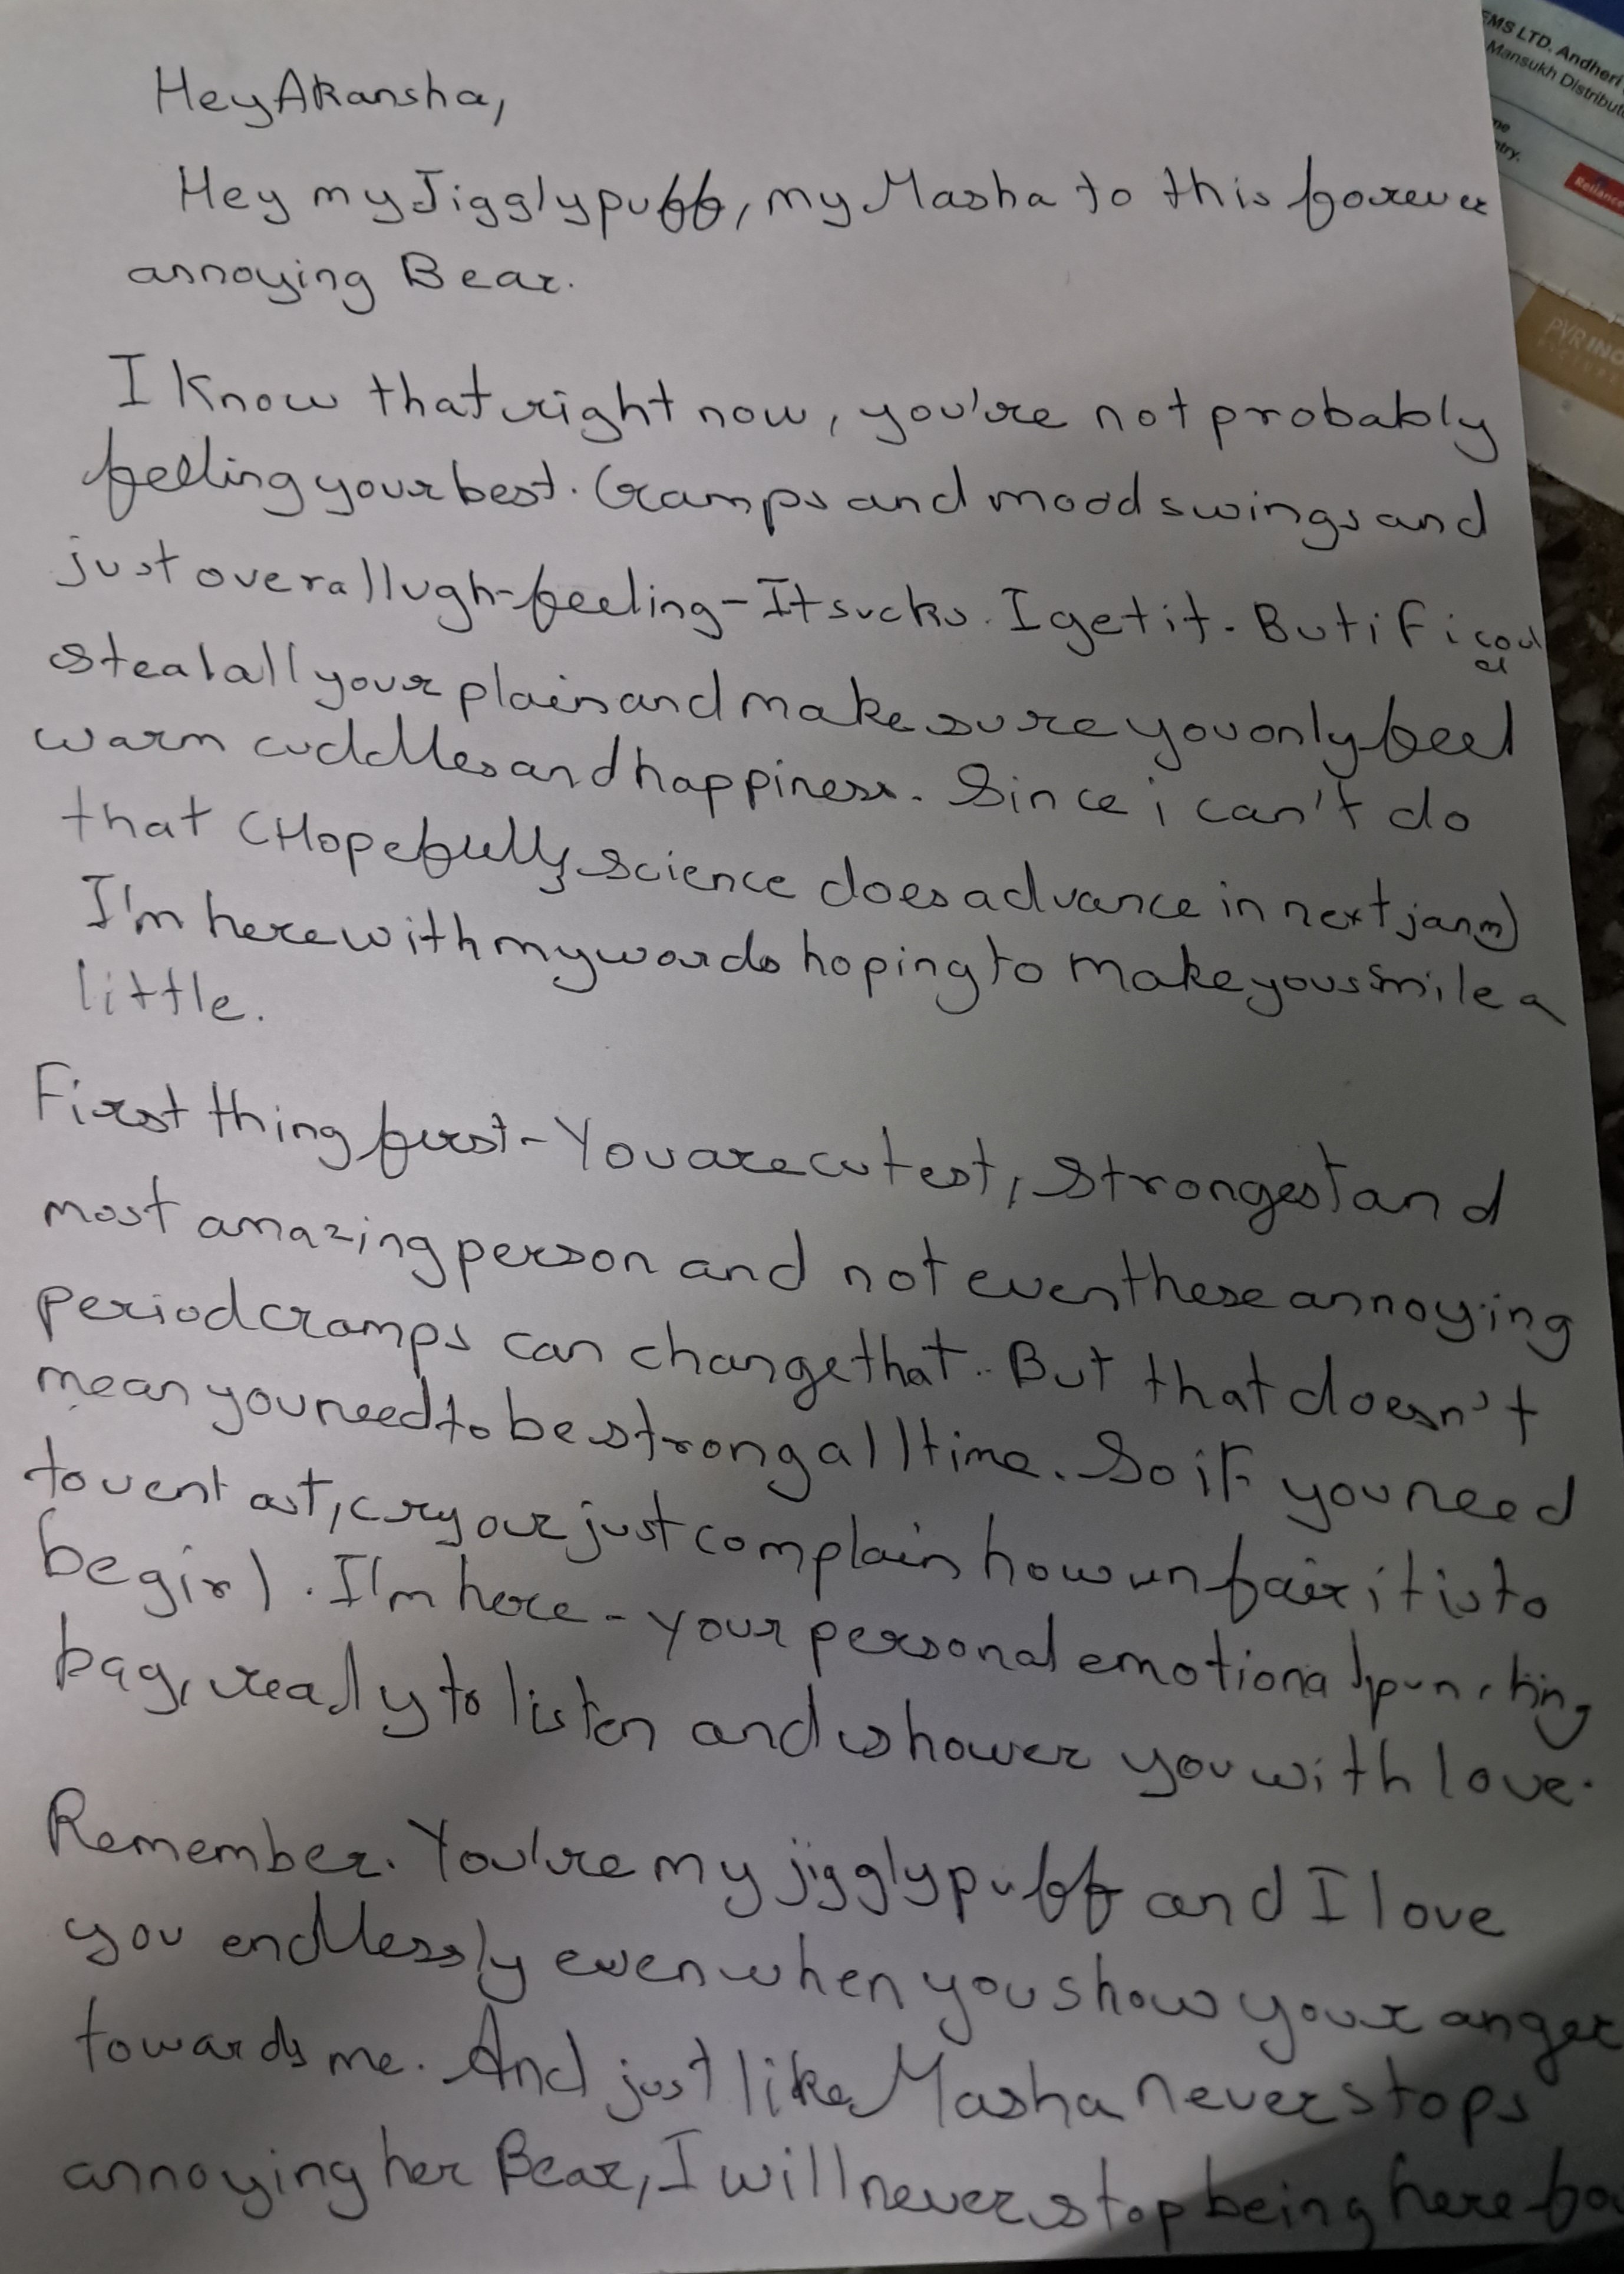 Hey Akansha,
Hey my Jigglypuff, my Masha to this forever
annoying Bear.
I know that right now, you're not probably
feeling your best. Cramps and mood swings and
just overall ugh-feeling - It sucks. I get it. But if i could
steal all your plain and make sure you only feel
warm cuddles and happiness. Since i can't do
that (Hopefully, science does advance in next janm)
I'm here with my words hoping to make you smile a
little.
First thing first - You are cutest, strongest and
most amazing person and not even these annoying
period cramps can change that.. But that doesn't
mean you need to be strong all time. So if you need
to vent out, cry our just complain how unfair it is to
be girl. I'm here - your personal emotional punching
bag, ready to listen and shower you with love.
Remember. You're my jigglypuff and I love
you endlessly even when you show your anger
towards me. And just like Masha never stops
annoying her Bear, I will never stop being here fo
EMS LTD. Andheri
Mansukh Distribut
me
ntry.
Reliance
PVR INO